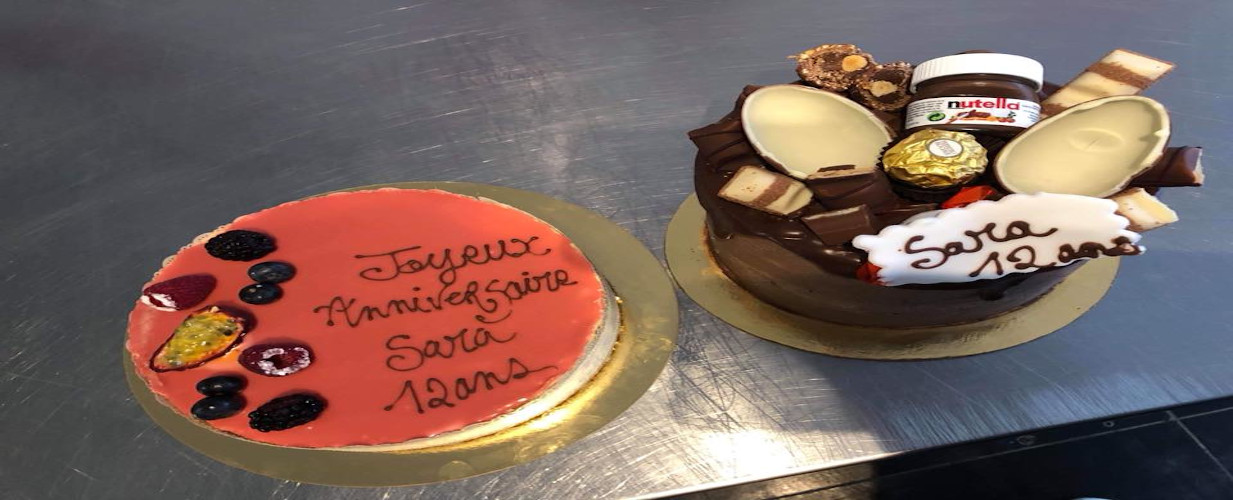 Joyeux
Anniversaire
Sara
12 ans
nutella
Sara
12 ans